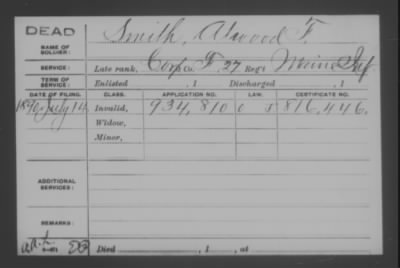 DEAD
NAME OF SOLDIER: Smith, Atwood F.
SERVICE: Late rank, Corp Co. F, 27 Reg't Maine Inf.
TERM OF SERVICE: Enlisted , 1 Discharged , 1
DATE OF FILING. CLASS. APPLICATION NO. LAW. CERTIFICATE NO.
1890 July 14 Invalid, 934,810 816,446.
Widow,
Minor,
ADDITIONAL SERVICES:
REMARKS:
Died , 1 , at